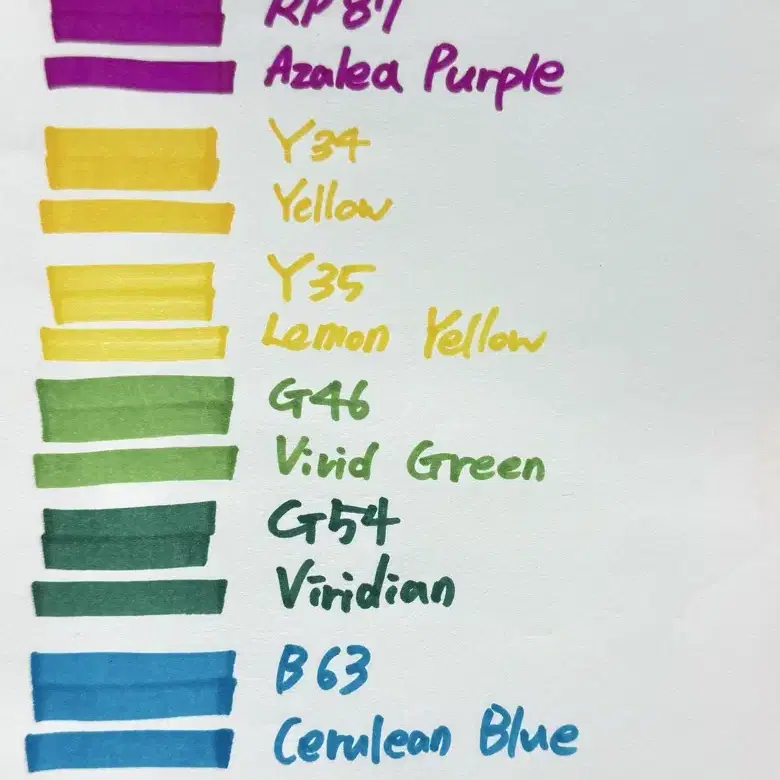 RP87
Azalea Purple
Y34
Yellow
Y35
Lemon Yellow
G46
Vivid Green
G54
Viridian
B63
Cerulean Blue